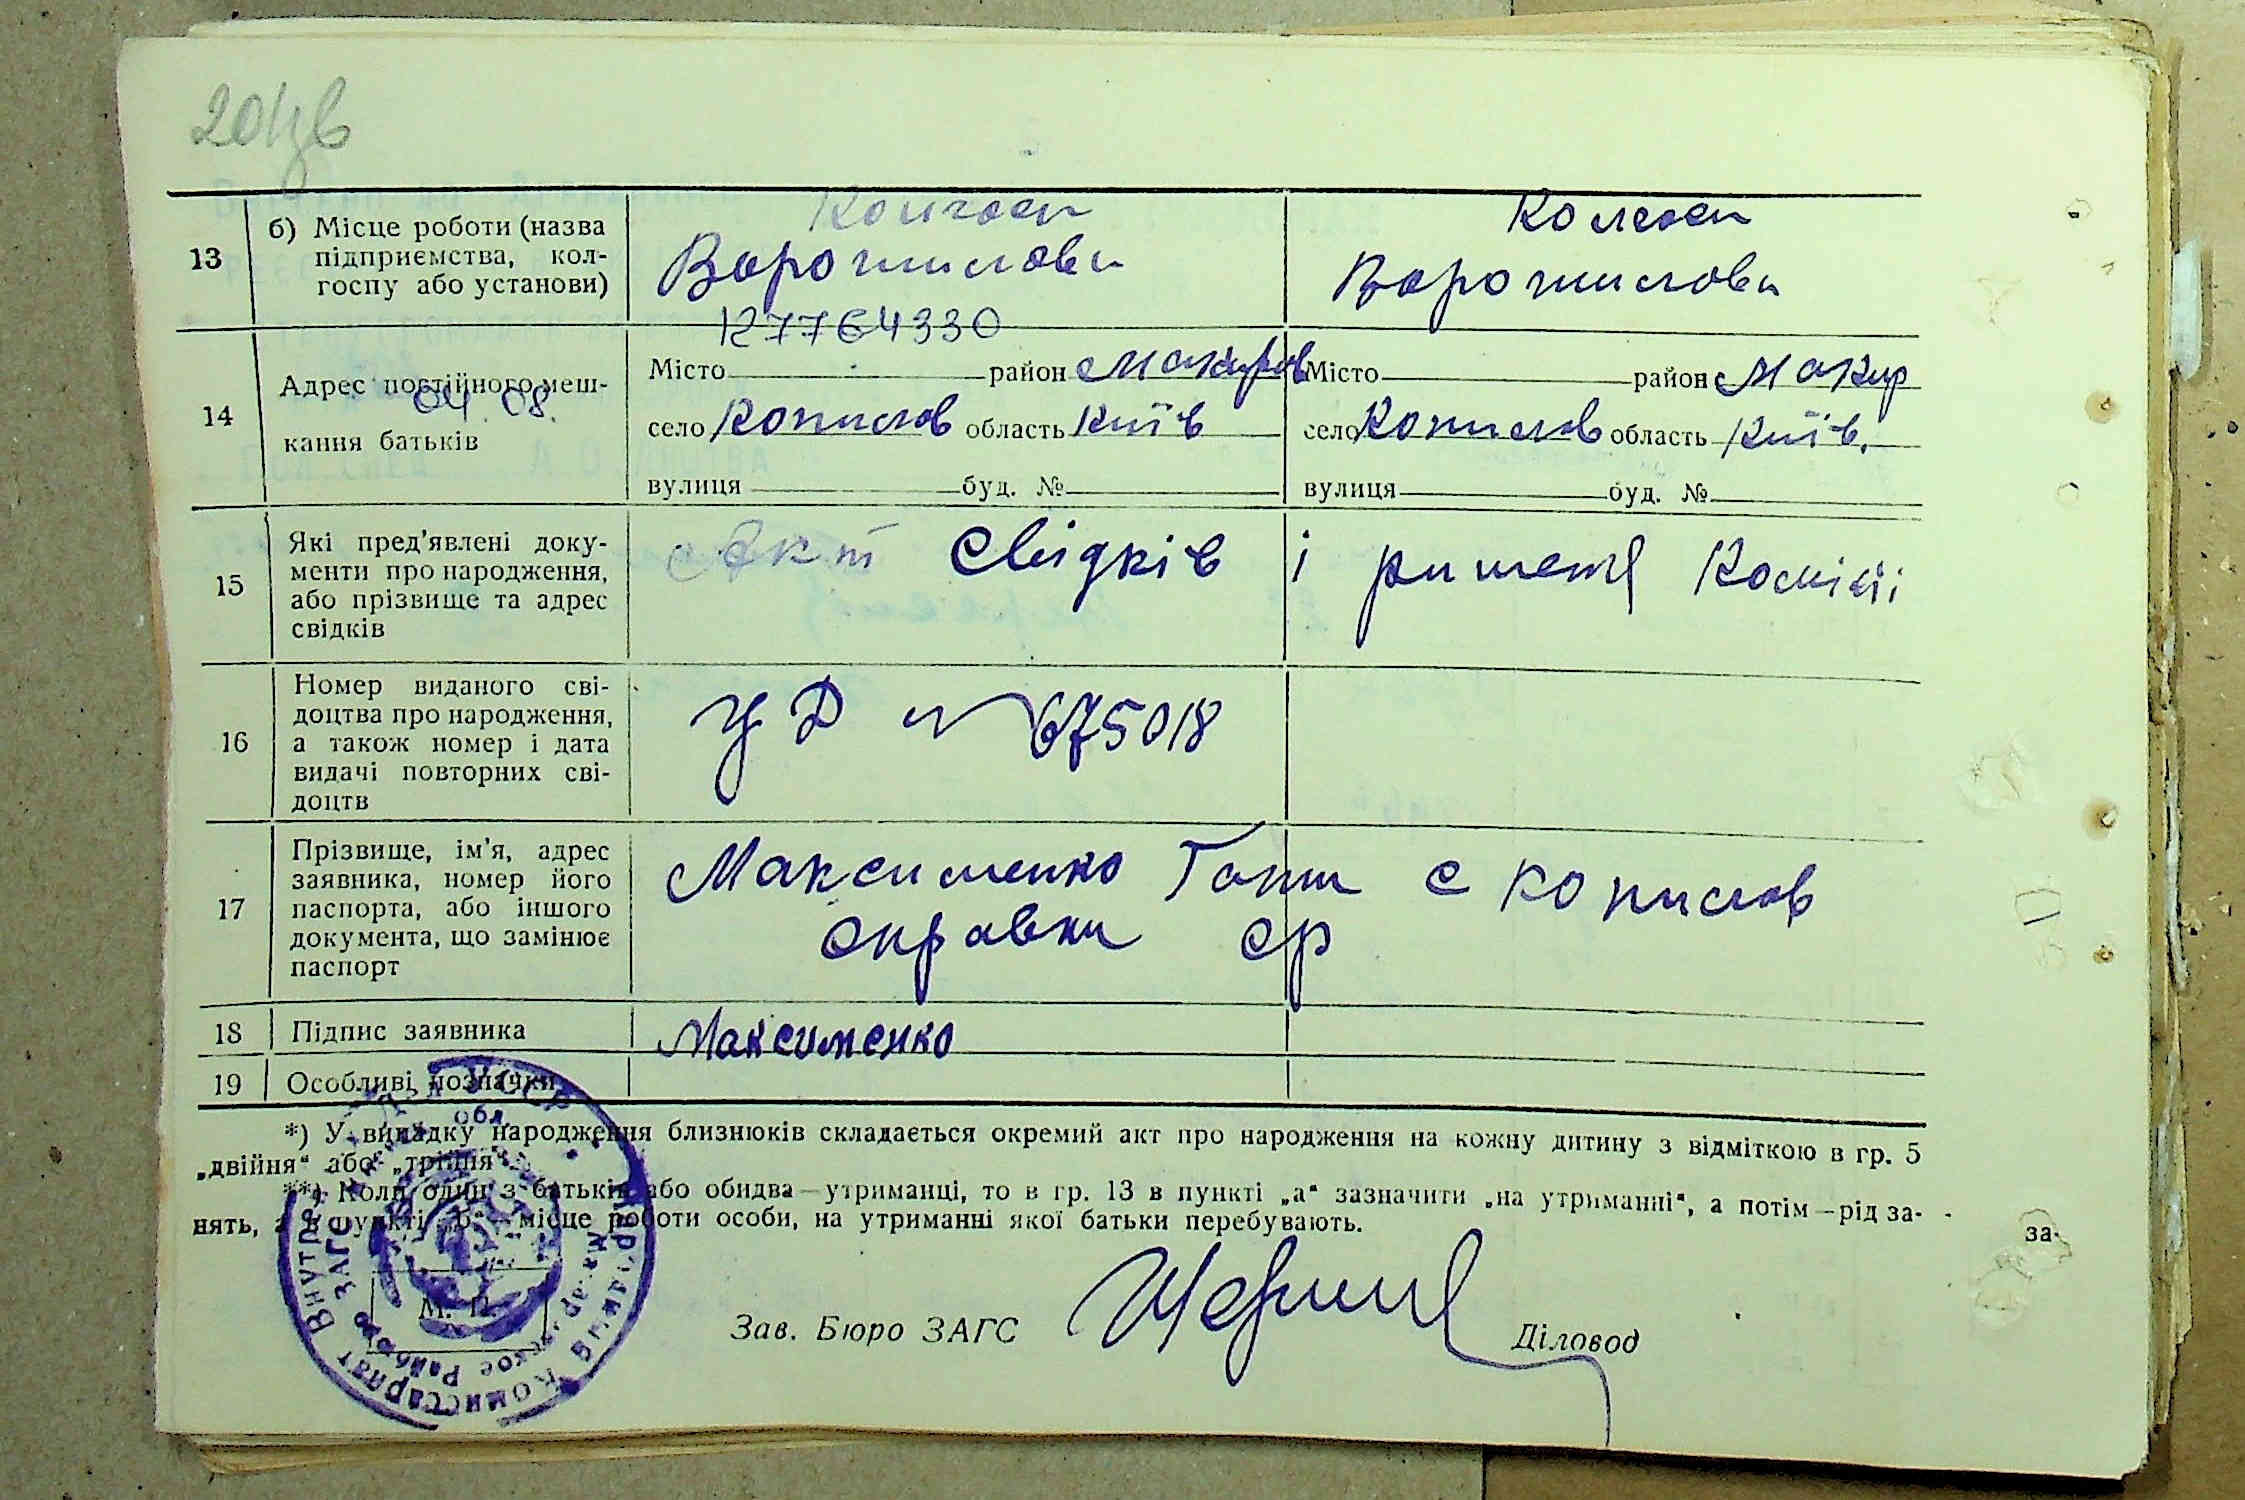 13
б) Місце роботи (назва
підприємства, кол-
госпу або установи)
Колгосп
Ворошилова
Колгосп
Ворошилова
127764330
14
Адрес постійного меш-
04 08
кання батьків
Місто район Макарів
село Копилов область Київ
вулиця буд. №
Місто район Макар
село Копилов область Київ.
вулиця буд. №
15
Які пред'явлені доку-
менти про народження,
або прізвище та адрес
свідків
Акт свідків і комісії
16
Номер виданого сві-
доцтва про народження,
а також номер і дата
видачі повторних сві-
доцтв
№ 675018
17
Прізвище, ім'я, адрес
заявника, номер його
паспорта, або іншого
документа, що замінює
паспорт
Максименко с Копилов
справки ср
18
Підпис заявника
Максименко
19
Особливі позначки
*) У випадку народження близнюків складається окремий акт про народження на кожну дитину з відміткою в гр. 5
„двійня" або „трійня".
**) Коли один з батьків або обидва—утриманці, то в гр. 13 в пункті „а" зазначити „на утриманні", а потім—рід за-
нять, а в пункті „б"—місце роботи особи, на утриманні якої батьки перебувають.
за-
М. П.
Зав. Бюро ЗАГС
Діловод